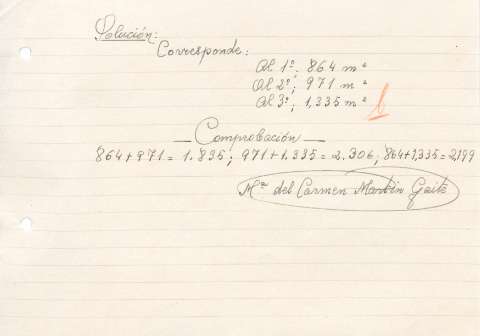 Solución:
Corresponde:
Al 1º; 864 m²
Al 2º; 971 m²
Al 3º; 1,335 m²
b
Comprobación
864+971=1.835; 971+1.335=2.306; 864+1,335=2,199
Mª del Carmen Martin Gaite